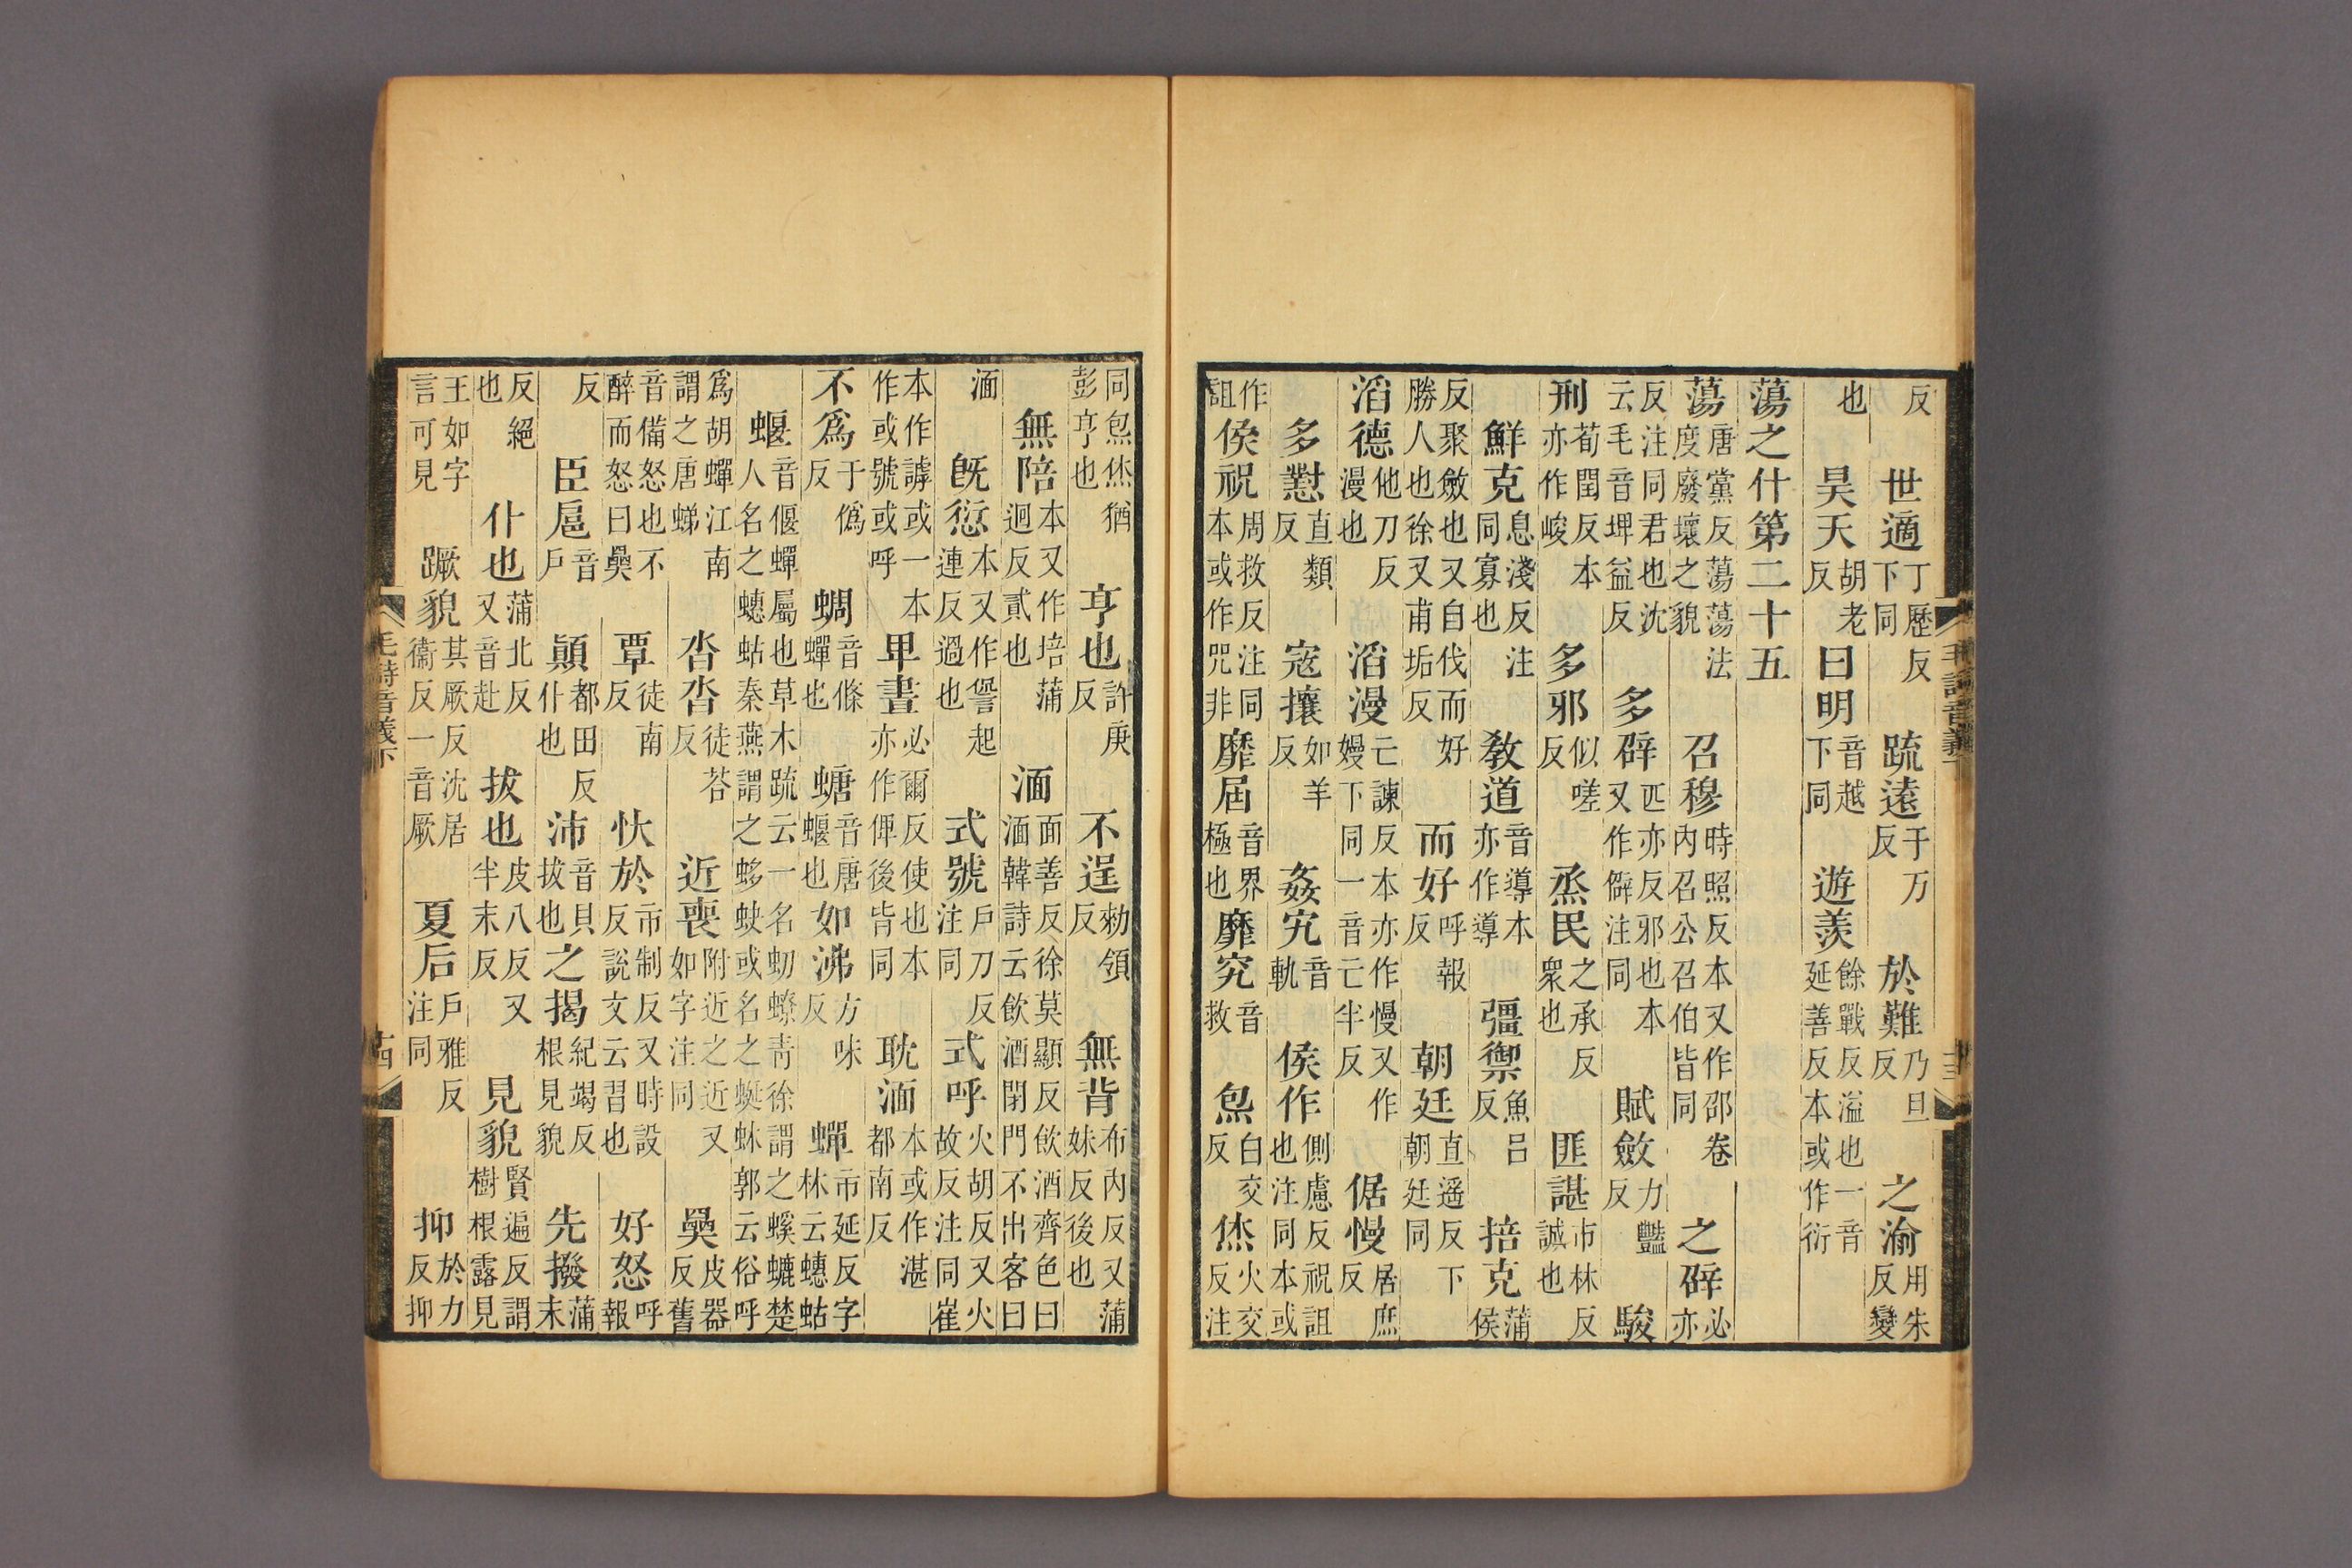 反　世適丁歷反下同　疏遠于万反　於難乃旦反　之渝用朱反變
也　昊天胡老反　曰明音越下同　遊羨餘戰反溢也一音延善反本或作衍
蕩之什第二十五
蕩唐黨反蕩蕩法度廢壞之貌　召穆時照反本又作邵卷內召公召伯皆同　之辟必亦
反注同君也沈云毛音埤益反　多辟匹亦反邪也本又作僻注同　賦斂力豔反　駿
刑荀閏反本亦作峻　多邪似嗟反　烝民之承反衆也　匪諶市林反誠也
鮮克息淺反注同寡也　教道音導本亦作導　彊禦魚呂反　掊克蒲侯
反聚斂也又自伐而好勝人也徐又甫垢反　而好呼報反　朝廷直遥反下朝廷同
滔德他刀反漫也　滔漫亡諫反本亦作慢又作嫚下同一音亡半反　倨慢居庶反
多懟直類反　寇攘如羊反　姦宄音軌　侯作側慮反注同祝詛也本或
作詛　侯祝周救反注同本或作呪非　靡屆音界極也　靡究音救　炰白交反　烋火交反注
同炰烋猶彭亨也　亨也許庚反　不逞勑領反　無背布內反又蒲妹反後也
無陪本又作培蒲迴反貳也　湎面善反徐莫顯反飲酒齊色曰湎韓詩云飲酒閉門不出客曰
湎　旣愆本又作諐起連反過也　式號戶刀反注同　式呼火胡反又火故反注同崔
本作謼或一本作或號或呼　卑晝必爾反使也本亦作俾後皆同　耽湎本或作湛都南反
不爲于僞反　蜩音條蟬也　螗音唐蝘也　如沸方味反　蟬市延反字林云蟪蛄
蝘音偃蟬屬也草木疏云一名蛁蟟青徐謂之螇螰楚人名之蟪蛄秦燕謂之蛥蚗或名之蜓蚞郭云俗呼
爲胡蟬江南謂之唐蜨　沓沓徒荅反　近喪附近之近又如字注同　奰皮器反舊
音備怒也不醉而怒曰奰　覃徒南反　忕於市制反又時設反說文云習也　好怒呼報
反　臣扈音戶　顛都田反仆也　沛音貝拔也　之揭紀竭反根見貌　先撥蒲末
反絕也　仆也蒲北反又音赴　拔也皮八反又半末反　見貌賢遍反謂樹根露見
王如字言可見　蹶貌其厥反沈居衞反一音厥　夏后戶雅反注同　抑於力反抑
毛詩音義下
十三
毛詩音義下
十四